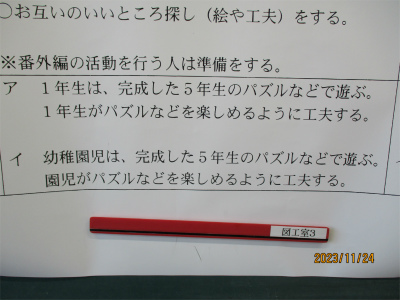 ○お互いのいいところ探し（絵や工夫）をする。
※番外編の活動を行う人は準備をする。
ア １年生は、完成した５年生のパズルなどで遊ぶ。
１年生がパズルなどを楽しめるように工夫する。
イ 幼稚園児は、完成した５年生のパズルなどで遊ぶ。
園児がパズルなどを楽しめるように工夫する。
図工室3
2023/11/24